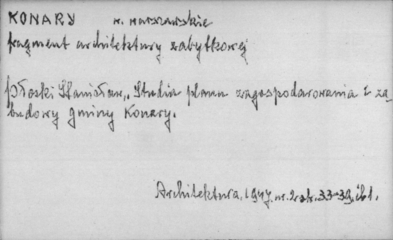 KONARY w. warszawskie
fragment architektury zabytkowej
Płoski Stanisław, Studia planu zagospodarowania i za
budowy gminy Konary.
Architektura, 1947, nr. 2 str. 33-39, il.